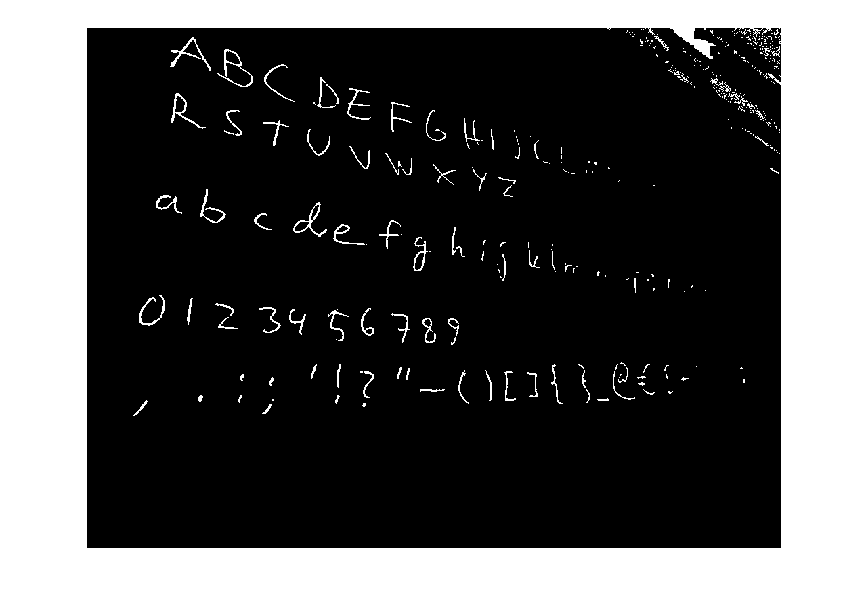 A B C D E F G H I J K L
R S T U V W X Y Z
a b c d e f g h i j k l m
0 1 2 3 4 5 6 7 8 9
, . : ; ' ! ? " - ( ) [ ] { } _ @ €